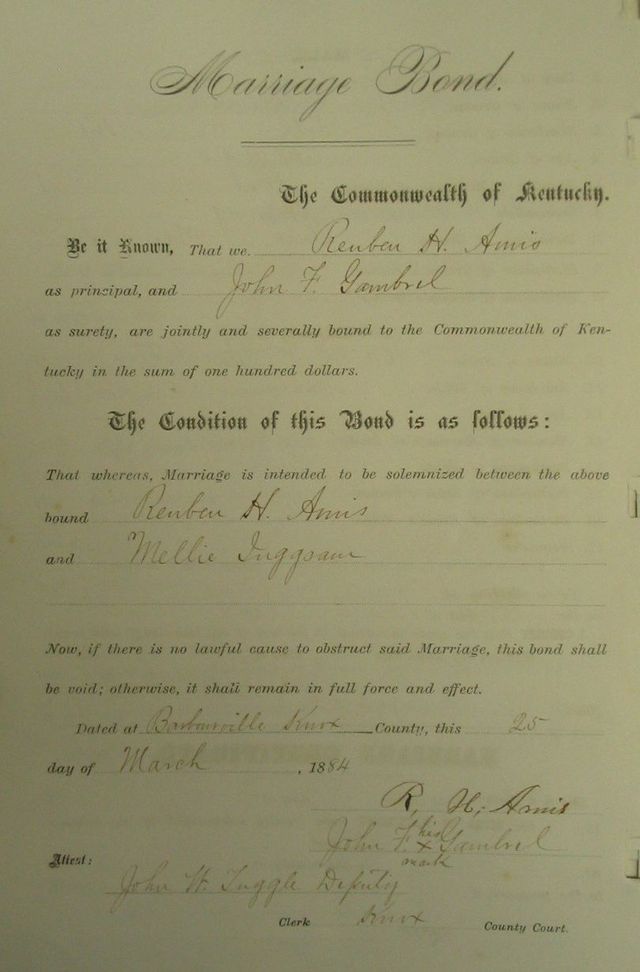 Marriage Bond.
The Commonwealth of Kentucky.
Be it Known, That we. Reuben H. Amis
as principal, and John F. Gambrel
as surety, are jointly and severally bound to the Commonwealth of Ken-
tucky in the sum of one hundred dollars.
The Condition of this Bond is as follows:
That whereas, Marriage is intended to be solemnized between the above
bound Reuben H. Amis
and Mellie
Now, if there is no lawful cause to obstruct said Marriage, this bond shall
be void; otherwise, it shall remain in full force and effect.
Dated at Barbourville Knox County, this 25
day of March, 1884
R, H, Amis
John F. his x mark Gambrel
Attest:
John W. Tuggle Deputy
Clerk Knox County Court.